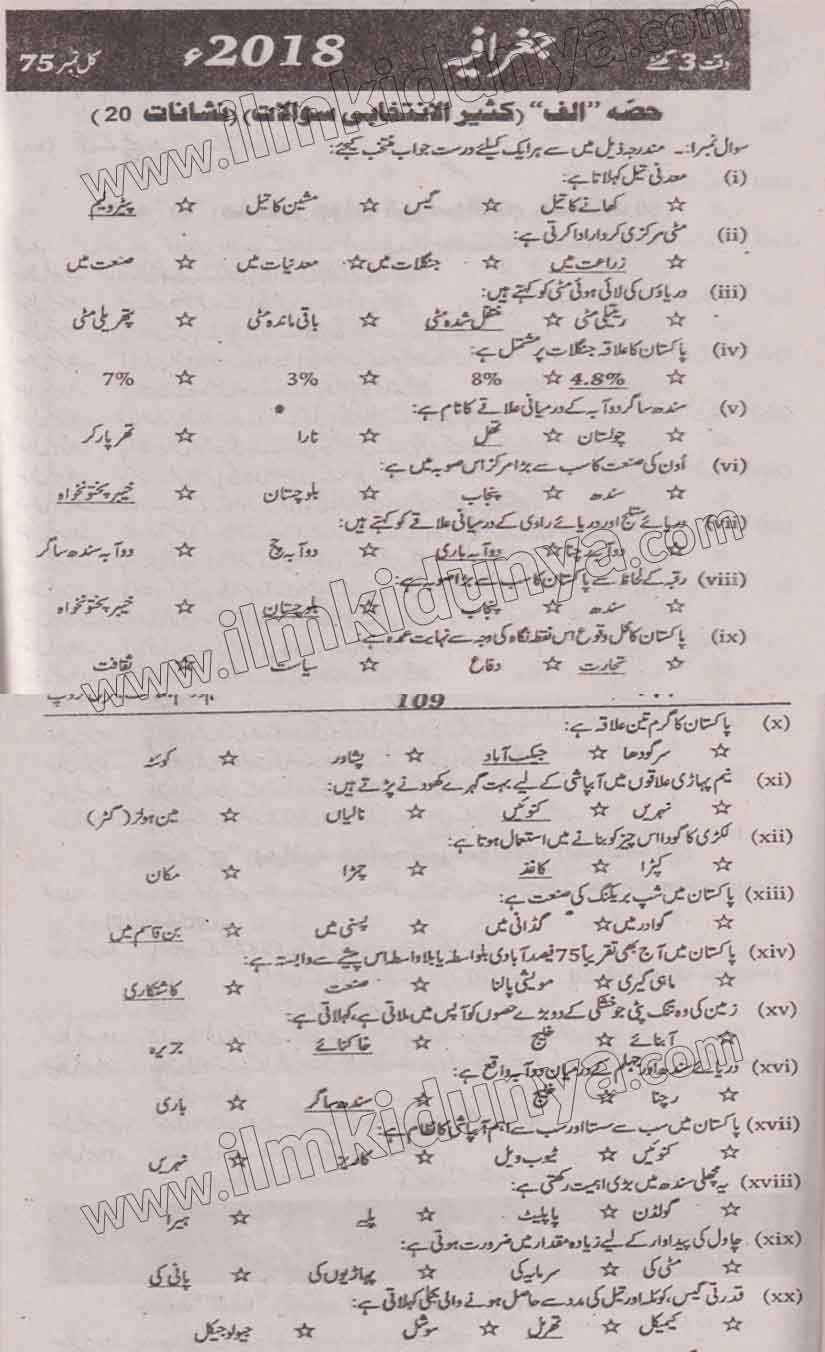 وقت 3 گھنٹے جغرافیہ 2018ء کل نمبر 75
حصّہ "الف" (کثیر الانتخابی سوالات) (نشانات 20)
سوال نمبر1:۔ مندرجہ ذیل میں سے ہر ایک کیلئے درست جواب منتخب کیجئے:
(i) معدنی تیل کہلاتا ہے:
☆ کھانے کا تیل ☆ گیس ☆ مشین کا تیل ☆ پیٹرولیم
(ii) مٹی مرکزی کردار ادا کرتی ہے:
☆ زراعت میں ☆ جنگلات میں ☆ معدنیات میں ☆ صنعت میں
(iii) دریاؤں کی لائی ہوئی مٹی کو کہتے ہیں:
☆ ریتیلی مٹی ☆ منتقل شدہ مٹی ☆ باقی ماندہ مٹی ☆ پتھریلی مٹی
(iv) پاکستان کا علاقہ جنگلات پر مشتمل ہے:
☆ 4.8% ☆ 8% ☆ 3% ☆ 7%
(v) سندھ ساگر دوآبہ کے درمیانی علاقے کا نام ہے:
☆ چولستان ☆ تھل ☆ نارا ☆ تھرپارکر
(vi) اُون کی صنعت کا سب سے بڑا مرکز اس صوبہ میں ہے:
☆ سندھ ☆ پنجاب ☆ بلوچستان ☆ خیبر پختونخواہ
(vii) دریائے ستلج اور دریائے راوی کے درمیانی علاقے کو کہتے ہیں:
☆ دوآبہ رچنا ☆ دوآبہ باری ☆ دوآبہ چج ☆ دوآبہ سندھ ساگر
(viii) رقبہ کے لحاظ سے پاکستان کا سب سے بڑا صوبہ ہے:
☆ سندھ ☆ پنجاب ☆ بلوچستان ☆ خیبر پختونخواہ
(ix) پاکستان کا محل وقوع اس نقطہ نگاہ کی وجہ سے نہایت عمدہ ہے:
☆ تجارت ☆ دفاع ☆ سیاست ☆ ثقافت
109
(x) پاکستان کا گرم ترین علاقہ ہے:
☆ سرگودھا ☆ جیکب آباد ☆ پشاور ☆ کوئٹہ
(xi) نیم پہاڑی علاقوں میں آبپاشی کے لیے بہت گہرے کھودنے پڑتے ہیں:
☆ نہریں ☆ کنوئیں ☆ نالیاں ☆ مین ہولز (گٹر)
(xii) لکڑی کا گودا اس چیز کو بنانے میں استعمال ہوتا ہے:
☆ کپڑا ☆ کاغذ ☆ چمڑا ☆ مکان
(xiii) پاکستان میں شپ بریکنگ کی صنعت ہے:
☆ گوادر میں ☆ گڈانی میں ☆ پسنی میں ☆ بن قاسم میں
(xiv) پاکستان میں آج بھی تقریباً 75 فیصد آبادی بلواسطہ یا بلاواسطہ اس پیشے سے وابستہ ہے:
☆ ماہی گیری ☆ مویشی پالنا ☆ صنعت ☆ کاشتکاری
(xv) زمین کی وہ تنگ پٹی جو خشکی کے دو بڑے حصوں کو آپس میں ملاتی ہے، کہلاتی ہے:
☆ آبنائے ☆ خلیج ☆ خاکنائے ☆ جزیرہ
(xvi) دریائے سندھ اور جہلم کے درمیان دوآبہ واقع ہے:
☆ رچنا ☆ خلیج ☆ سندھ ساگر ☆ باری
(xvii) پاکستان میں سب سے سستا اور سب سے اہم آبپاشی کا نظام ہے:
☆ کنوئیں ☆ ٹیوب ویل ☆ کاریز ☆ نہریں
(xviii) یہ مچھلی سندھ میں بڑی اہمیت رکھتی ہے:
☆ گولڈن ☆ پاپلیٹ ☆ پلہ ☆ ہیرا
(xix) چاول کی پیداوار کے لیے زیادہ مقدار میں ضرورت ہوتی ہے:
☆ مٹی کی ☆ سرمایہ کی ☆ پہاڑیوں کی ☆ پانی کی
(xx) قدرتی گیس، کوئلہ اور تیل کی مدد سے حاصل ہونے والی بجلی کہلاتی ہے:
☆ کیمیکل ☆ تھرمل ☆ سوشل ☆ جیولوجیکل
www.ilmkidunya.com
www.ilmkidunya.com
www.ilmkidunya.com
www.ilmkidunya.com